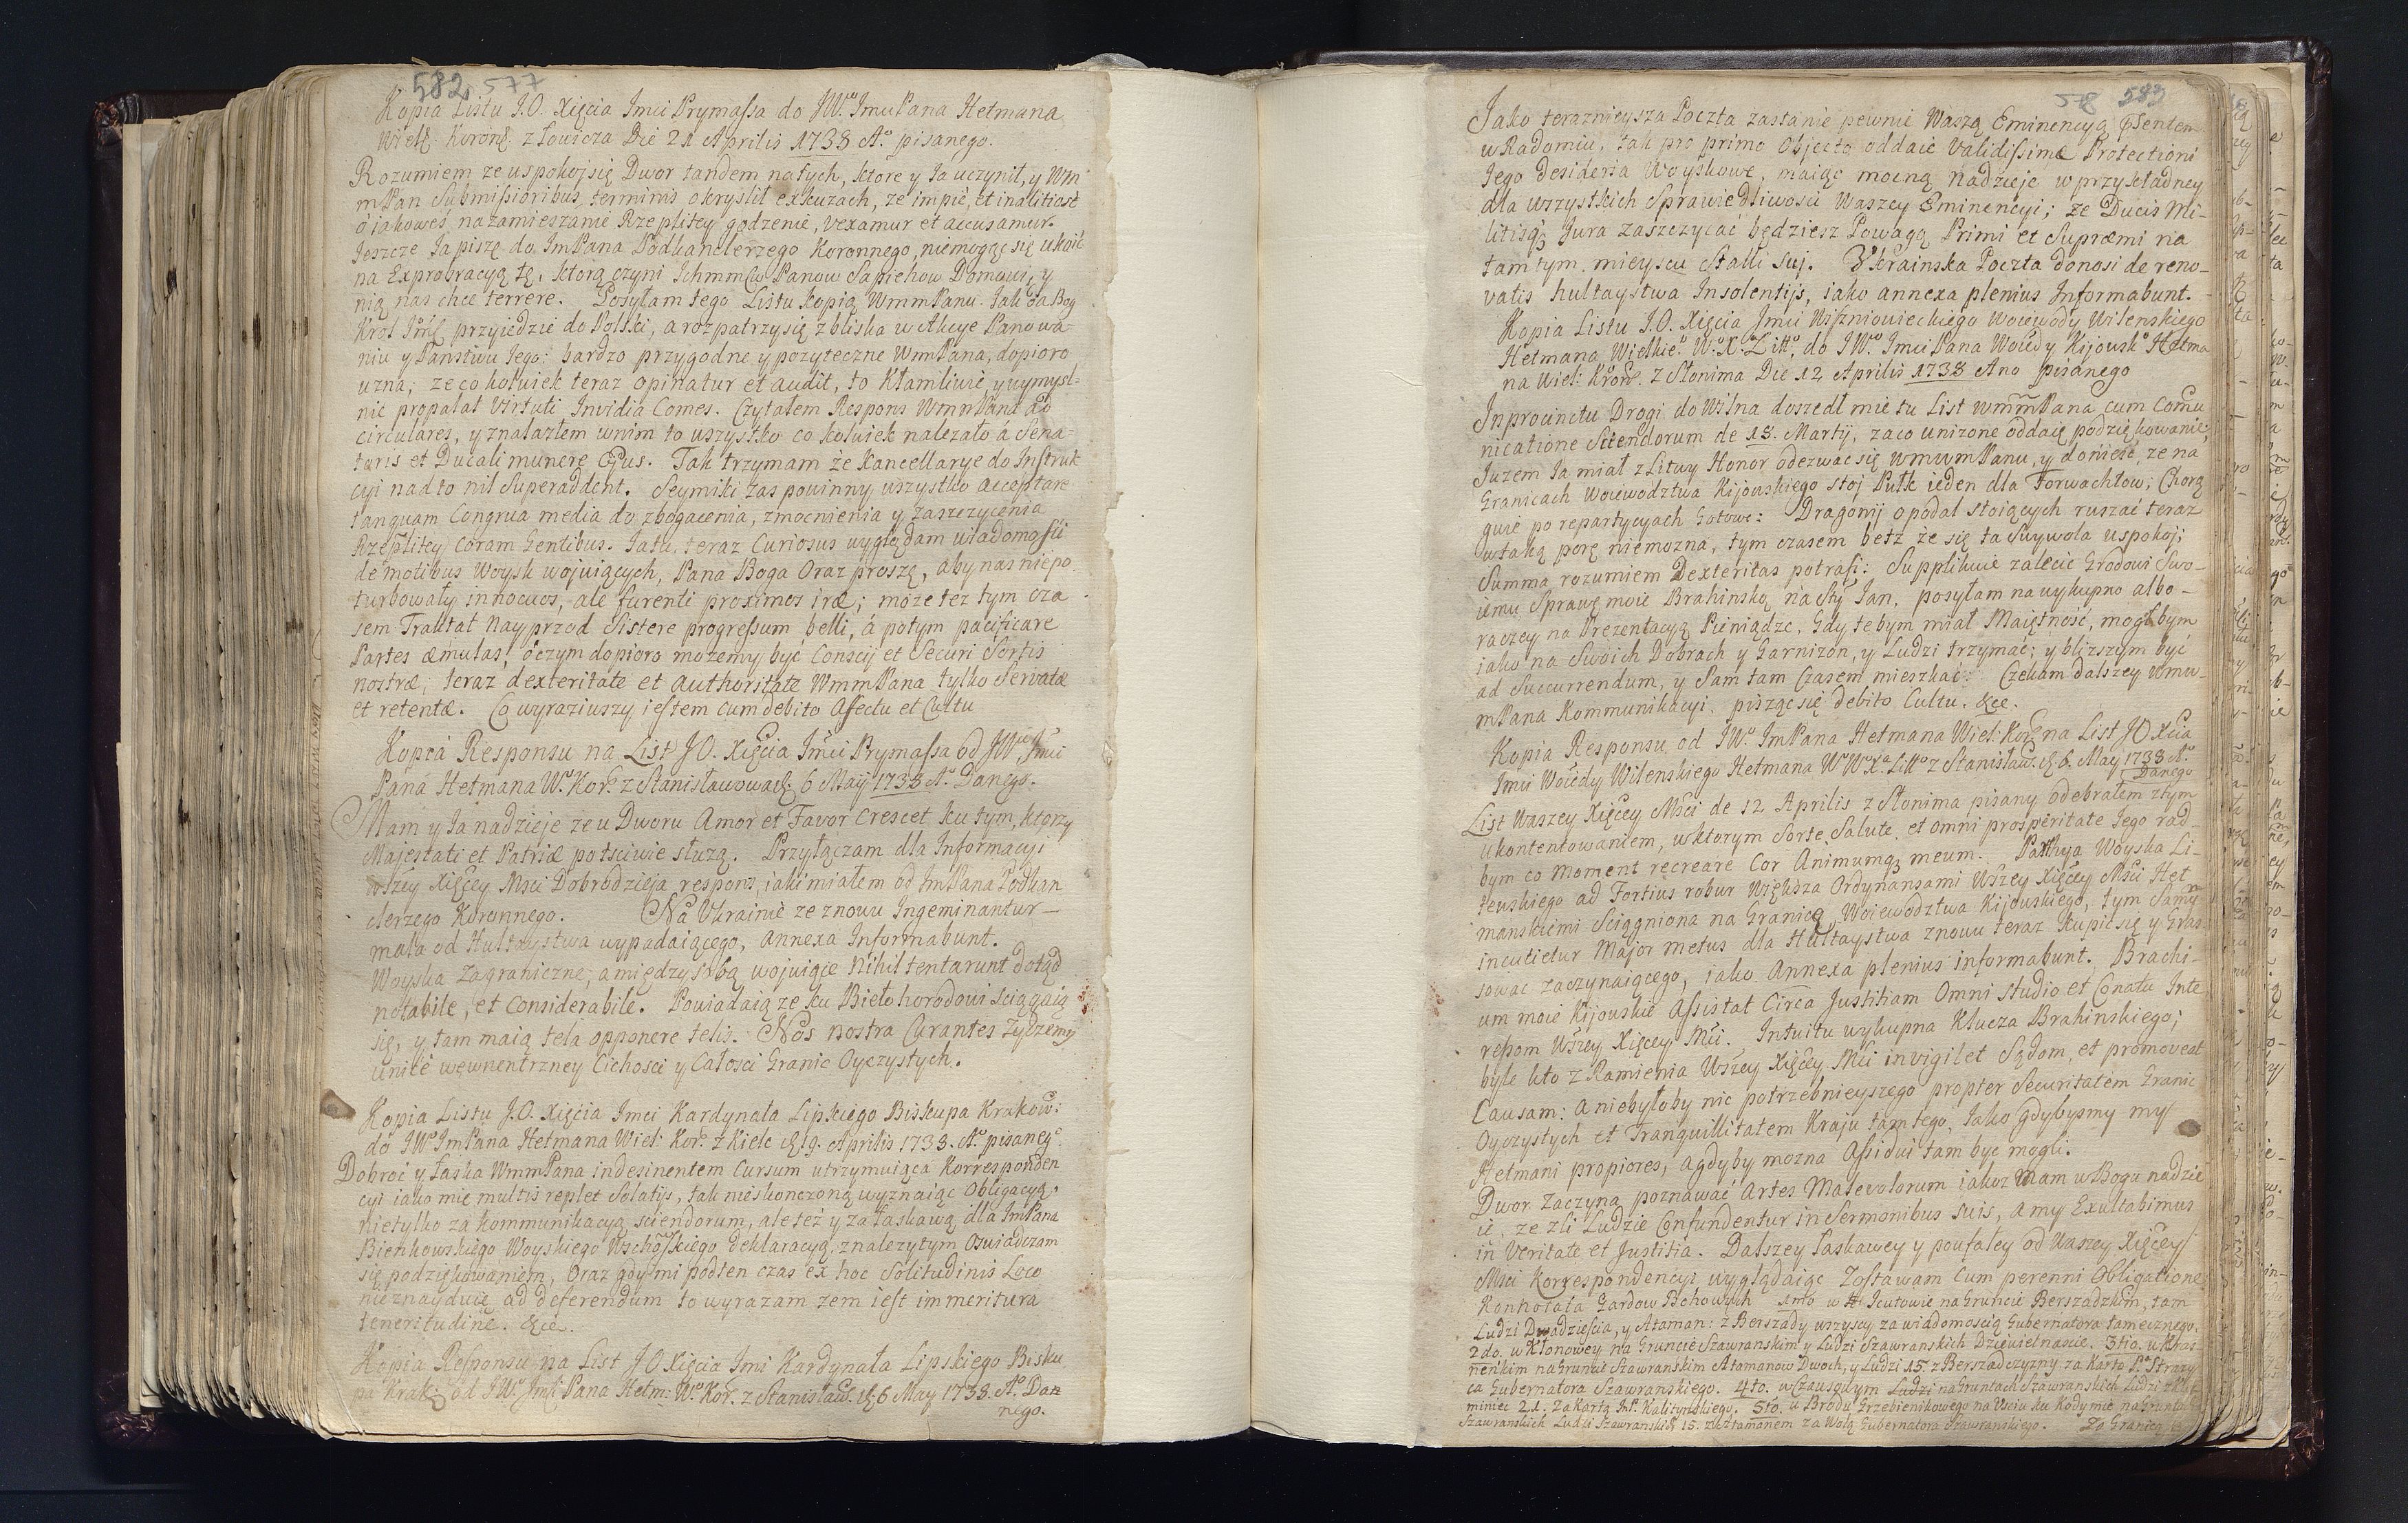 582 577
Kopia Listu J.O. Xięcia Imci Prymassa do JWo Imci Pana Hetmana
Wielk: Koronn: z Łowicza Die 21 Aprilis 1738 Ao pisanego.
Rozumiem ze uspokoj się Dwor tandem na tych, ktore y Ja uczynił, y Wm
mPan Submissioribus terminis okryslił exkuzach, ze impie, et inalitiose
o jakowes na zamieszanie Rzeplitey godzenie, vexamur et accusamur.
Jeszcze Ja piszę do ImPana Podkanclerzego Koronnego, niemogąc się ukoić
na Exprobracyą tę, ktorą czyni Ichmmciw Panow Sapiehow Domowi, y
nią nas chce terrere. Posyłam tego Listu kopią WmmPanu. Jak da Bog
Krol Imć przyiedzie do Polski, a rozpatrzy się z bliska w Akcye Panowa-
niu y Panstwu Jego: bardzo przygodne y pozyteczne WmmPana, dopioro
uzna; ze cokolwiek teraz opinatur et audit, to Kłamliwie, y wymysl=
nie propalat Virtuti Invidia Comes. Czytałem Respons WmmPana ad
circulares, y znalazłem w nim to wszystko co kolwiek nalezało á Sena-
toris et Ducali munere Opus. Tak trzymam że Kancellarye do Instruk
cyi nadto nil Superaddent. Seymiki zas powinny wszystko acceptare
tanquam Congrua media do zbogacenia, zmocnienia y zaszczycenia
Rzeplitey coram Gentibus. Ja tu teraz Curiosus wyglądam wiadomosci
de motibus Woysk wojuiących, Pana Boga Oraz proszę, aby nas niepo
turbowały innocuos, ale furenti proximos iræ; może tez tym cza
sem Traktat nayprzod Sistere progressum belli, á potym pacificare
Partes æmulas, o czym dopioro mozemy byc Conscij et Securi Sortis
nostræ; teraz dexteritate et authoritate WmmPana tylko Servatæ
et retentæ. Co wyraziwszy iestem cum debito Affectu et Cultu
Kopia Responsu na List JO. Xięcia Imci Prymassa od JWo Imci
Pana Hetmana Wo Kor: z Stanisławowa d. 6 Maij 1738 Ao Danego.
Mam y Ja nadzieje ze u Dworu Amor et Favor crescet ku tym, ktorzy
Majestati et Patriæ poćsciwie słuzą. Przyłączam dla Informacyi
Wszey Xięcey Msci Dobrodzieja respons, iaki miałem od ImPana Podkan
clerzego Koronnego. Na Ukrainie ze znowu Ingeminantur
mala od Hultaystwa wypadaiącego, annexa Informabunt.
Woyska Zagraniczne, a między sobą wojuiące Nihil tentarunt dotąd
notabile, et Considerabile. Powiadaią ze ku Białohorodowi sciągaią
się, y tam maią tela opponere telis. Nos nostra Curantes Zydzemy
unice wewnentrzney Cichosci y Całosci Granic Oyczystych.
Kopia Listu J.O. Xięcia Imci Kardynała Lipskiego Biskupa Krakow:
do JWo ImPana Hetmana Wiel: Kor: z Kielc d. 19. Aprilis 1738. Ao pisanego
Dobroć y łaska WmmPana indesinentem Cursum utrzymuiąca Korresponden
cyi iako mie multis replet Solatijs, tak nieskonczoną wyznaiąc Obligacyą,
nietylko za kommunikacyą sciendorum, ale też y za łaskawą dla ImPana
Bienkowskiego Woyskiego Wschowskiego deklaracyą, znalezytym Oswiadczam
się podziękowaniem, Oraz gdy mi podten czas ex hoc Solitudinis Loco
nieznayduię ad deferendum to wyrazam zem iest immeritura
teneritudine. &ce.
Kopia Responsu na List JO Xięcia Imi Kardynała Lipskiego Bisku
pa Krak: od JWo Imci Pana Hetm: Wo Kor. z Stanisław. d. 6 May 1738. Ao Dan
nego.
578 583
Jako teraznieysza Poczta zastanie pewnie Waszą Eminencyą Psentem
w Radomiu, tak pro primo Objecto oddaie Validissimæ Protectioni
Jego desideria Woyskowe, maiąc mocną nadzieje w przykładney
dla wszystkich Sprawiedliwosci Waszey Eminencyi; ze Ducis Mi-
litisq; Jura zaszczycać będziesz Powagą Primi et Supræmi na
tamtym mieyscu Stalli suj. Ukrainska Poczta donosi de reno-
vatis hultaystwa Insolentijs, iako annexa plenius Informabunt.
Kopia Listu J.O. Xięcia Jmci Wiszniowieckiego Woiewody Wilenskiego
Hetmana Wielkieo W. X. Litto, do JWo Imci Pana Woiedy Kijowsko Hetma
na Wiel: Koron. z Słonima Die 12 Aprilis 1738 Ano pisanego
Inprocinctu Drogi do Wilna doszedł mie tu List WmmPana cum Comu
nicatione Sciendorum de 18. Martij, zaco unizone oddaię podziękowanie;
Juzem Ja miał z Litwy Honor odezwac się WmwmPanu, y donieść, ze na
Granicach Woiewodztwa Kijowskiego stoj Pułk ieden dla Forwachtow; Chorą
gwie po repartycyach Gotowe: Dragonij opodal stoiących ruszać teraz
w taką porę niemozna, tym czasem betz że się ta Swywola uspokoj;
Summa rozumiem Dexteritas potrafi: Supplikuie zalecic Grodowi Swo-
iemu Sprawę moie Brahinską na Sty Jan, posyłam na wykupno albo-
raczey na Prezentacyą Pieniądze. Gdy te bym miał Maiętność, mogłbym
iako na Swoich Dobrach y Garnizon, y Ludzi trzymać; y blizszym być
ad Succurrendum, y Sam tam Czasem mieszkać: Czekam dalszey Wmw-
mPana Kommunikacyi. pisząc się debito Cultu. &ce.
Kopia Responsu od JWo ImPana Hetmana Wiel: Kor: na List JO Xcia
Imci Woiedy Wilenskiego Hetmana W WoXa Litto z Stanisław. d. 6. May 1738 Ao
Danego
List Waszey Xięcey Msci de 12 Aprilis z Słonima pisany odebrałem z tym
ukontentowaniem, w ktorym Sorte, Salute, et omni prosperitate Jego rad
bym co moment recreare Cor Animumq; meum. Partyja Woyska Li-
tewskiego ad Fortius robur Większa Ordynansami Wszey Xięcey Msci Het
manskiemi Sciągniona na Granicę Woiewodztwa Kijowskiego, tym Samym
incutietur Major metus dla Hultaystwa znowu teraz kupic się y Gras
sowac zaczynaiącego, iako Annexa plenius informabunt. Brachi-
um moie Kijowskie Assistat Circa Justitiam Omni studio et Conatu Inte
ressom Wszey Xięcey Mci. Intuitu wykupna Klucza Brahinskiego;
byle kto z Ramienia Wszey Xięcey Mci invigilet Sądom, et promoveat
Causam: a niebyłoby nic potrzebnieyszego propter Securitatem Granic
Oyczystych et Tranquillitatem Kraju tamtego, Jako gdybysmy my
Hetmani propiores, a gdyby mozna Assidui tam byc mogli.
Dwor Zaczyna poznawać Artes Malevolorum iakoz mam w Bogu nadzie
ie, ze zli Ludzie Confundentur in Sermonibus suis, a my Exultabimus
in Veritate et Justitia. Dalszey łaskawey y poufałey od Waszey Xięcey
Msci Korrespondencyi wyglądaiąc Zostawam Cum perenni Obligatione
Konnotata Gardow Bohowych 1mo w Icutowie na Gruncie Berszadzkim, tam
Ludzi Dwadziescia, y Ataman: z Berszady wszyscy za wiadomoscią Gubernatora tamecznego.
2do. w Klonowey na Gruncie Szawranskim y Ludzi Szawranskich Dziewietnascie. 3tio. w Kras
nenkim na Gruncie Szawranskim Atamanow Dwoch, y Ludzi 15 z Berszadczyzny za Karto Po Strazy
ca Gubernatora Szawranskiego. 4to. w Czausowym Ludzi na Gruntach Szawranskich Ludzi
miniec 21. za Kartą InP. Kalitynskiego. 5to. u Brodu Grzebienikowego na Usciu ku Kodymie na Grunta
Szawranskich Ludzi Szawranskich 15. z Atamanem za Wolą Gubernatora Szawranskiego. Za Granicą